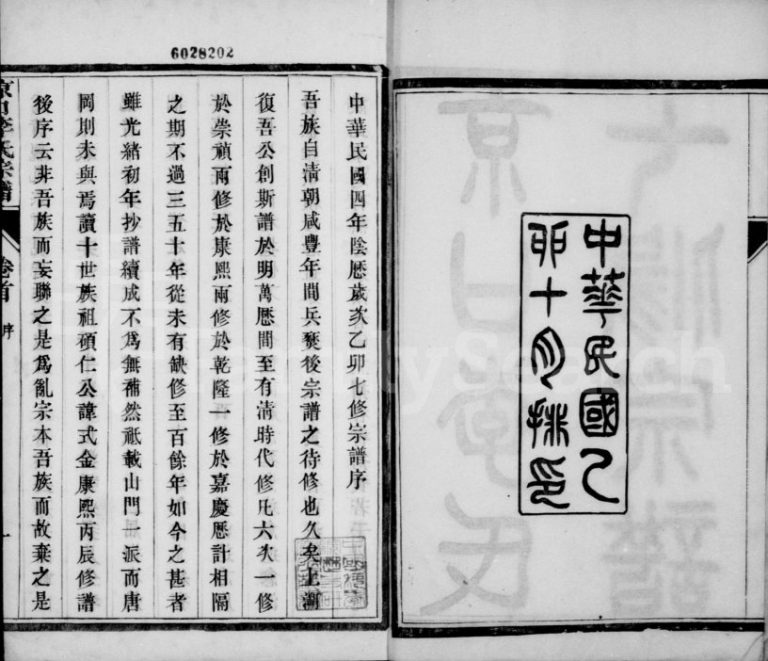 6028202
中華民國乙
卯十月排印
中華民國四年陰歷歲次乙卯七修宗譜序
吾族自清朝咸豐年間兵燹後宗譜之待修也久矣上溯
復吾公創斯譜於明萬歷間至有清時代修凡六次一修
於崇禎兩修於康熙兩修於乾隆一修於嘉慶歷計相隔
之期不過三五十年從未有缺修至百餘年如今之甚者
雖光緒初年抄譜續成不爲無補然祗載山門一派而唐
岡則未與焉讀十世族祖碩仁公諱式金康熙丙辰修譜
後序云非吾族而妄聯之是爲亂宗本吾族而故棄之是
京山李氏宗譜
卷首
序
一